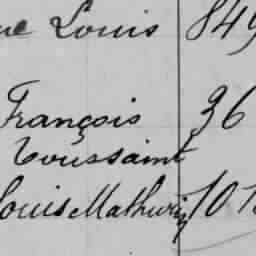 ue Louis 849
François 36
Toussaint
Louis Mathurin 101